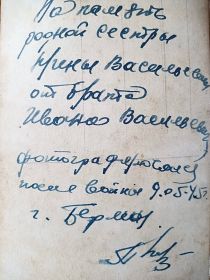 На память
родной сестры
Ирины Васильевны
от брата
Ивана Васильевич
фотографировались
после войны 9.05.45г.
г. Берлин.